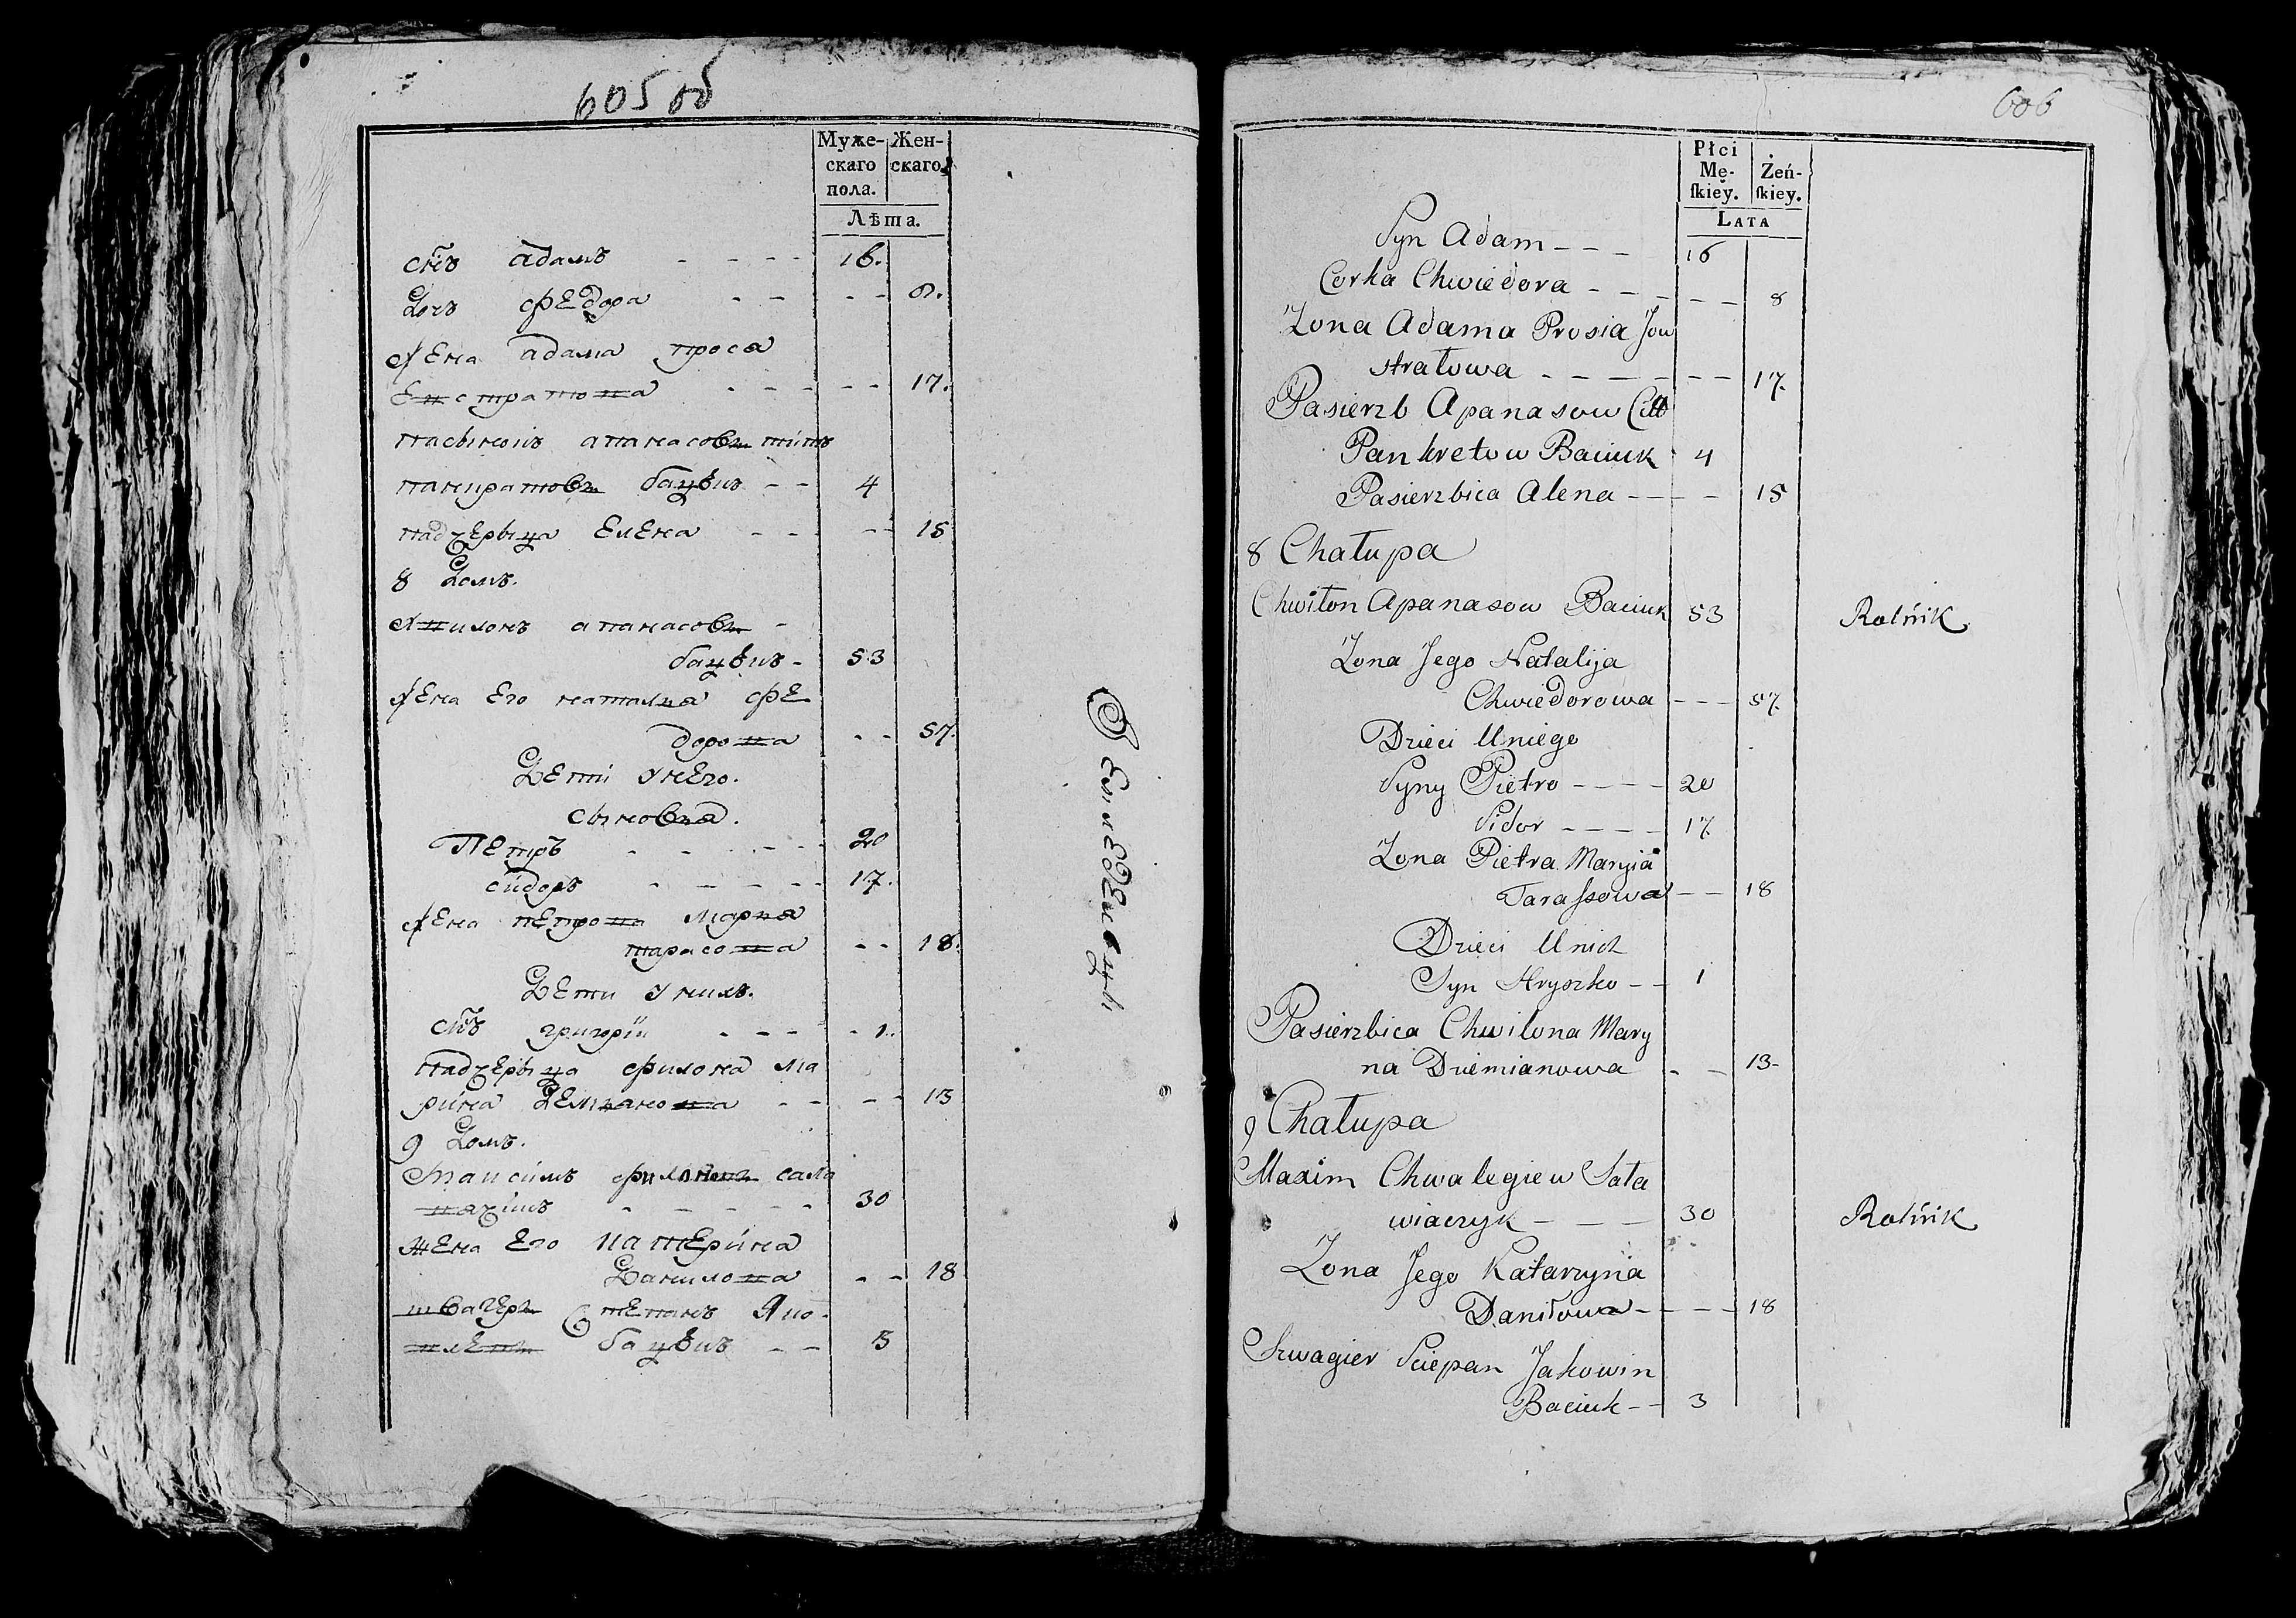 605 об
Муже-
скаго
пола.
Жен-
скаго
Лѣта.
снъ адамъ - - - - 16.
Дочь федора - - - - 8.
жена адама прося
Евстратова - - - - - 17.
пасынокъ апанасовъ титъ
панкратовъ бацюкъ - - 4
падчерыца Елена - - - - - 15
8 Домъ.
Филонъ апанасовъ -
бацюкъ - 53
жена Его наталия фе
дорова - - 57.
Дети у него.
сыновья.
Петръ - - - - - 20
сидоръ - - - - - 17.
жена петрова мария
тарасова - - 18.
Дети у нихъ.
снъ григорiи - - - - 1.
падчерыца филона ма
рина Демianова - - - - 13
9 Домъ.
Максимъ сало
вячикъ - - - - - 30
жена Его катерина
Данилова - - 18
швагеръ степанъ Яко-
влевъ бацюкъ - - 3
606
Płci
Mę-
skiey.
Żeń-
skiey.
LATA
Syn Adam - - - 16
Corka Chwiedora - - - - - 8
Zona Adama Prosia Jow
stratowa - - - - - - - 17.
Pasierzb Apanasow Citt
Pankretow Baciuk 4
Pasierzbica Alena - - - - 15
8 Chałupa
Chwilon Apanasow Baciuk 53 Rolńik
Zona Jego Natalija
Chwiedorowa - - - 57.
Dzieci U niego
Syny Pietro - - - - 20
Sidor - - - - 17.
Zona Pietra Maryia
Tarassowa - - 18
Dzieci U nich
Syn Hryszko - - 1
Pasierzbica Chwilona Mary
na Dziemianowa - - 13-
9 Chałupa
Maxim Chwalegiew Sała
wiaczyk - - - 30 Rolńik
Zona Jego Katarzyna
Daniłowa - - - - 18
Szwagier Sciepan Jakowin
Baciuk - - 3